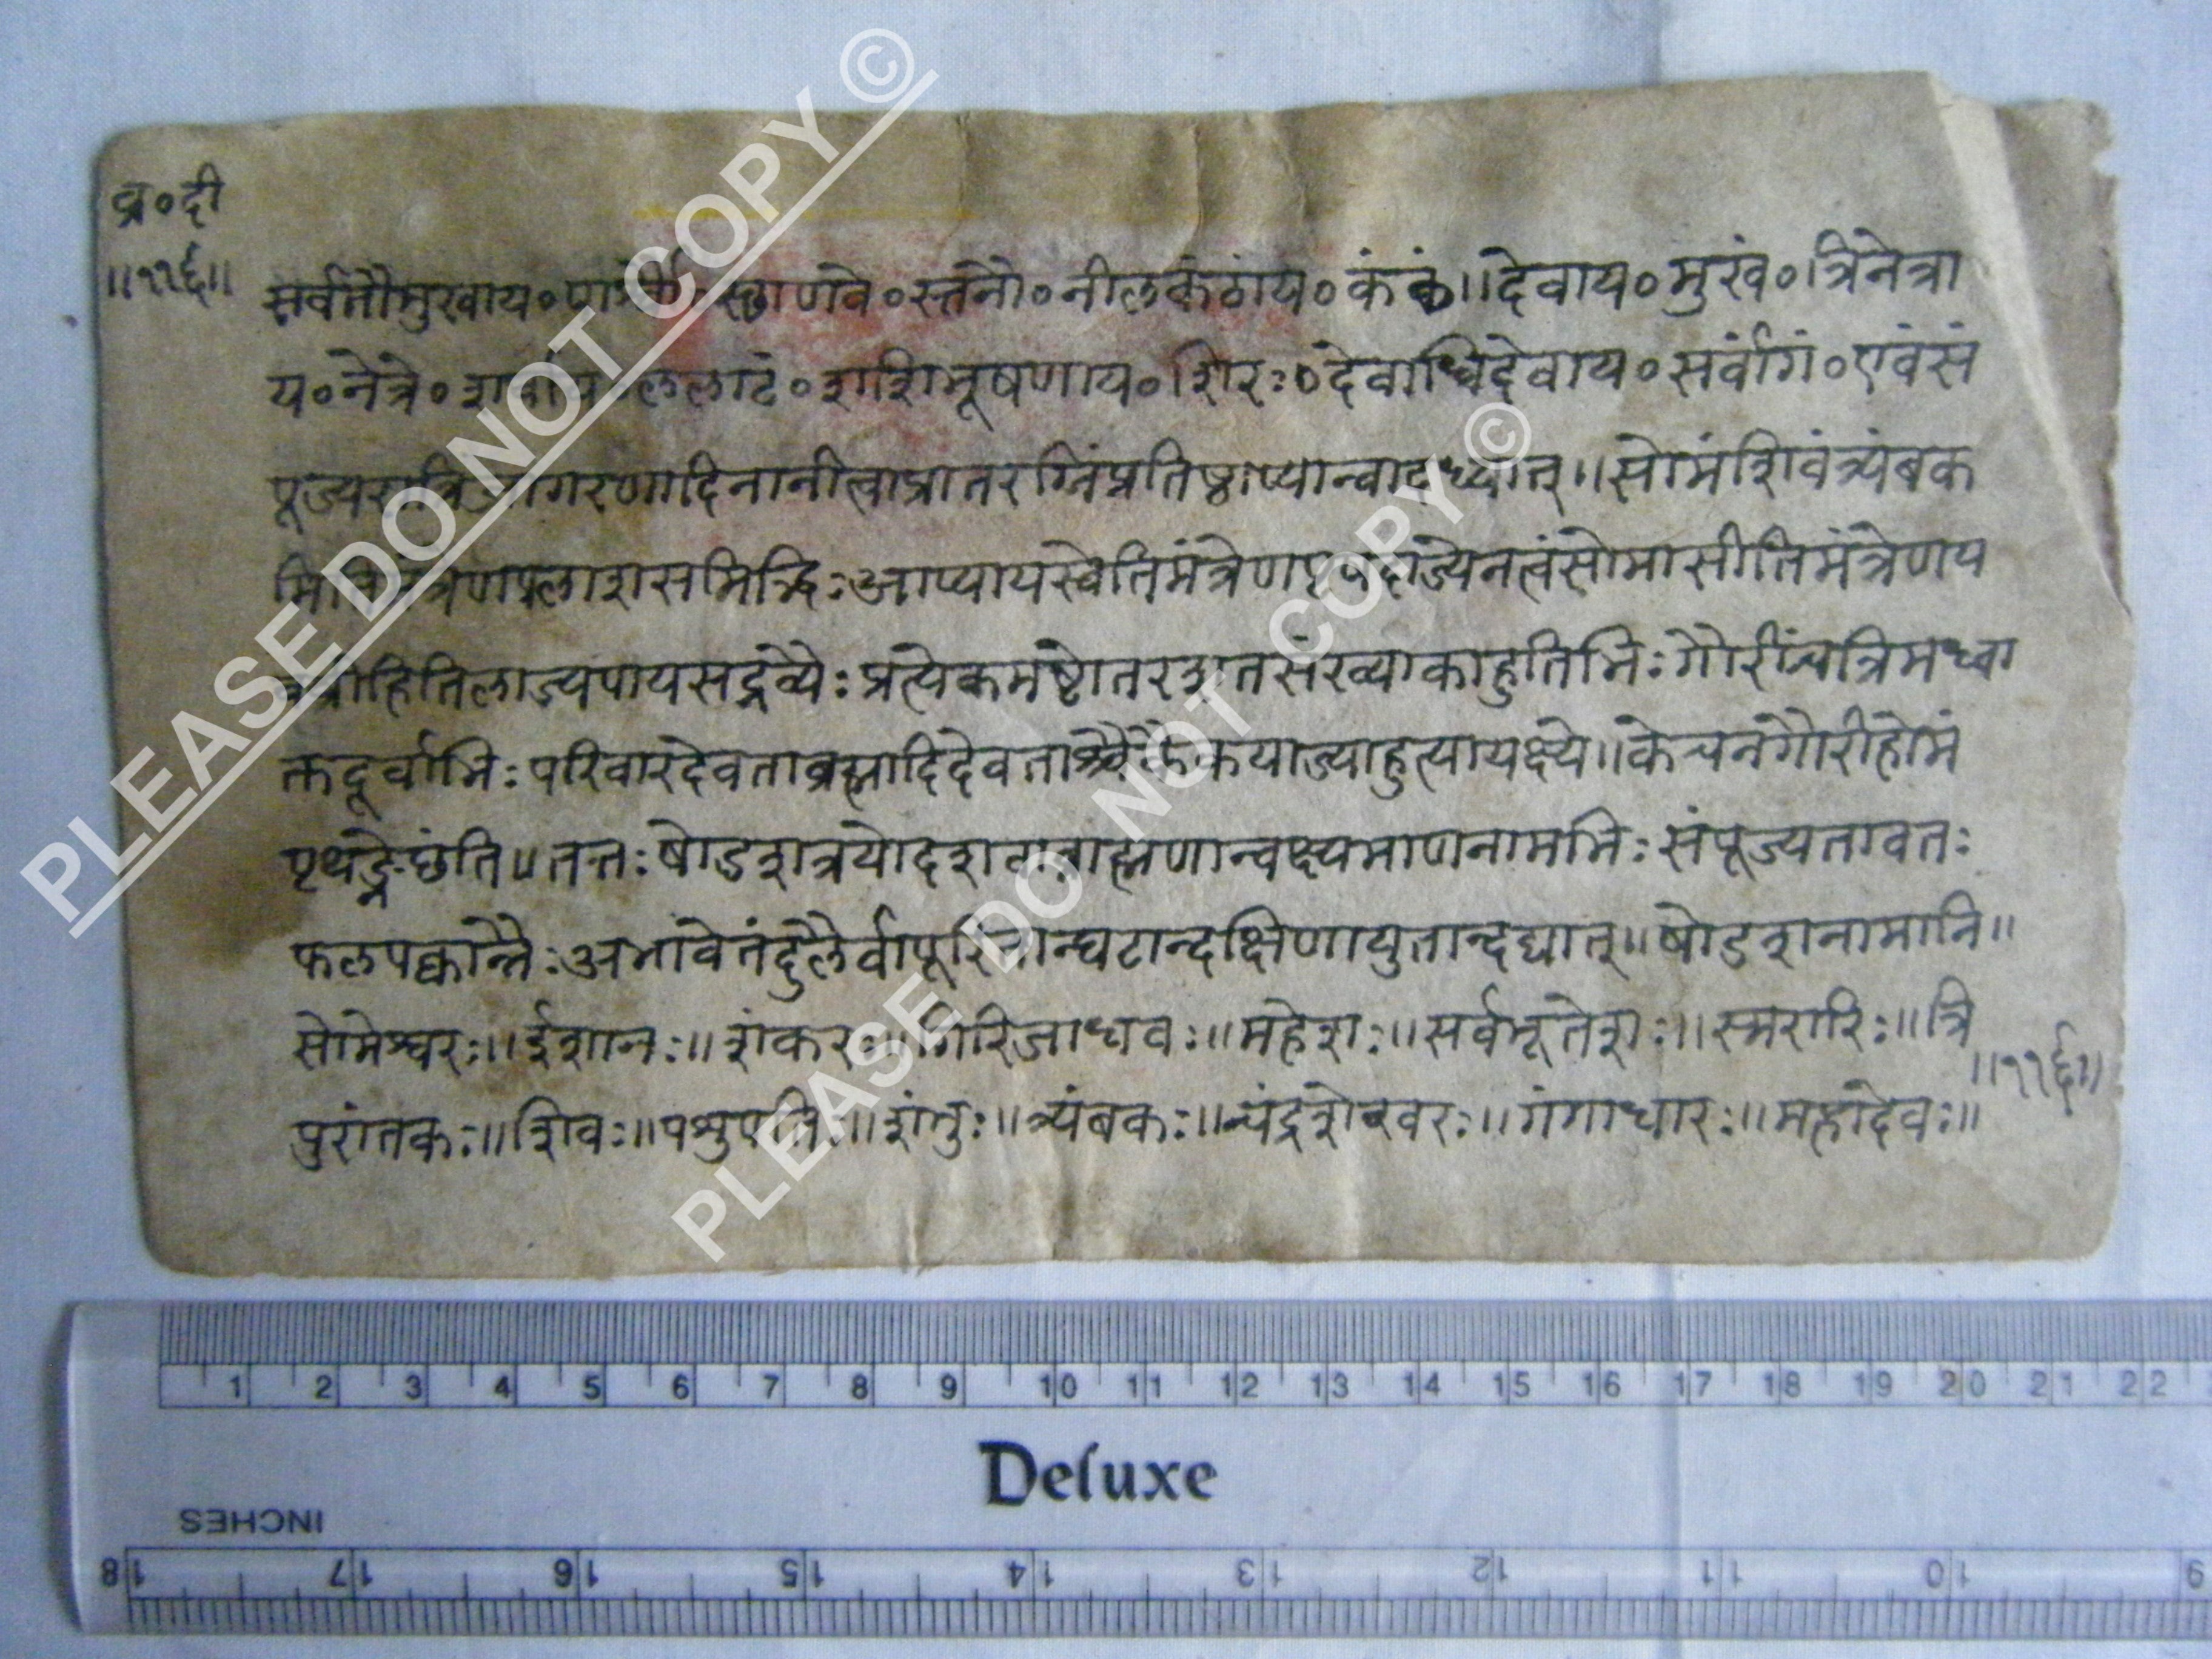 व्र॰दी
॥११६॥
सर्वतोमुखाय॰पार्श्वौ॰स्छाणवे॰स्तनौ॰नीलकंठाय॰कंठं॥देवाय॰मुखं॰त्रिनेत्रा
य॰नेत्रे॰शर्वाय॰ललाटं॰शशिभूषणाय॰शिरः॰देवाधिदेवाय॰सर्वांगं॰एवंसं
पूज्यरात्रिजागरणादिनानीत्वाप्रातरग्निंप्रतिष्ठाप्यान्वादध्यात्॥सोमंशिवंत्र्यंबक
मितिमंत्रेणपलाशसमिद्भिःआप्यायस्वेतिमंत्रेणपृषदाज्येनत्वंसोमासीतिमंत्रेणय
वव्रीहितिलाज्यपायसद्रव्यैःप्रत्येकमष्टोतरशतसंख्याकाहुतिभिःगौरींचत्रिमध्वा
क्तदूर्वाभिःपरिवारदेवताब्रह्मादिदेवताश्चैकैकयाज्याहुत्यायक्ष्ये॥केचनगौरीहोमं
पृथङ्नेछंति॥ततःषोडशत्रयोदशवाब्राह्मणान्वक्ष्यमाणनामभिःसंपूज्यतावतः
फलपक्वान्नैःअभावेतंदुलैर्वापूरितान्घटान्दक्षिणायुतान्दद्यात्॥षोडशनामानि॥
सोमेश्वरः॥ईशानः॥शंकरः॥गिरिजाधवः॥महेशः॥सर्वभूतेशः॥स्मरारिः॥त्रि
पुरांतकः॥शिवः॥पशुपतिः॥शंभुः॥त्र्यंबकः॥चंद्रशेखरः॥गंगाधारः॥महादेवः॥
॥११६॥
PLEASE DO NOT COPY ©
PLEASE DO NOT COPY ©
1 2 3 4 5 6 7 8 9 10 11 12 13 14 15 16 17 18 19 20 21 22
Deluxe
INCHES
18 17 16 15 14 13 12 11 10 9